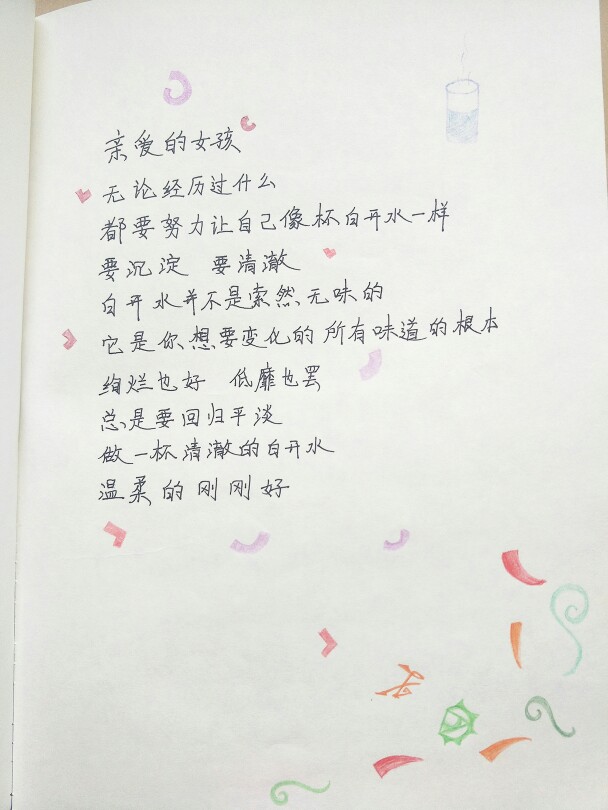 亲爱的女孩
无论经历过什么
都要努力让自己像杯白开水一样
要沉淀 要清澈
白开水并不是索然无味的
它是你想要变化的所有味道的根本
绚烂也好 低靡也罢
总是要回归平淡
做一杯清澈的白开水
温柔的刚刚好